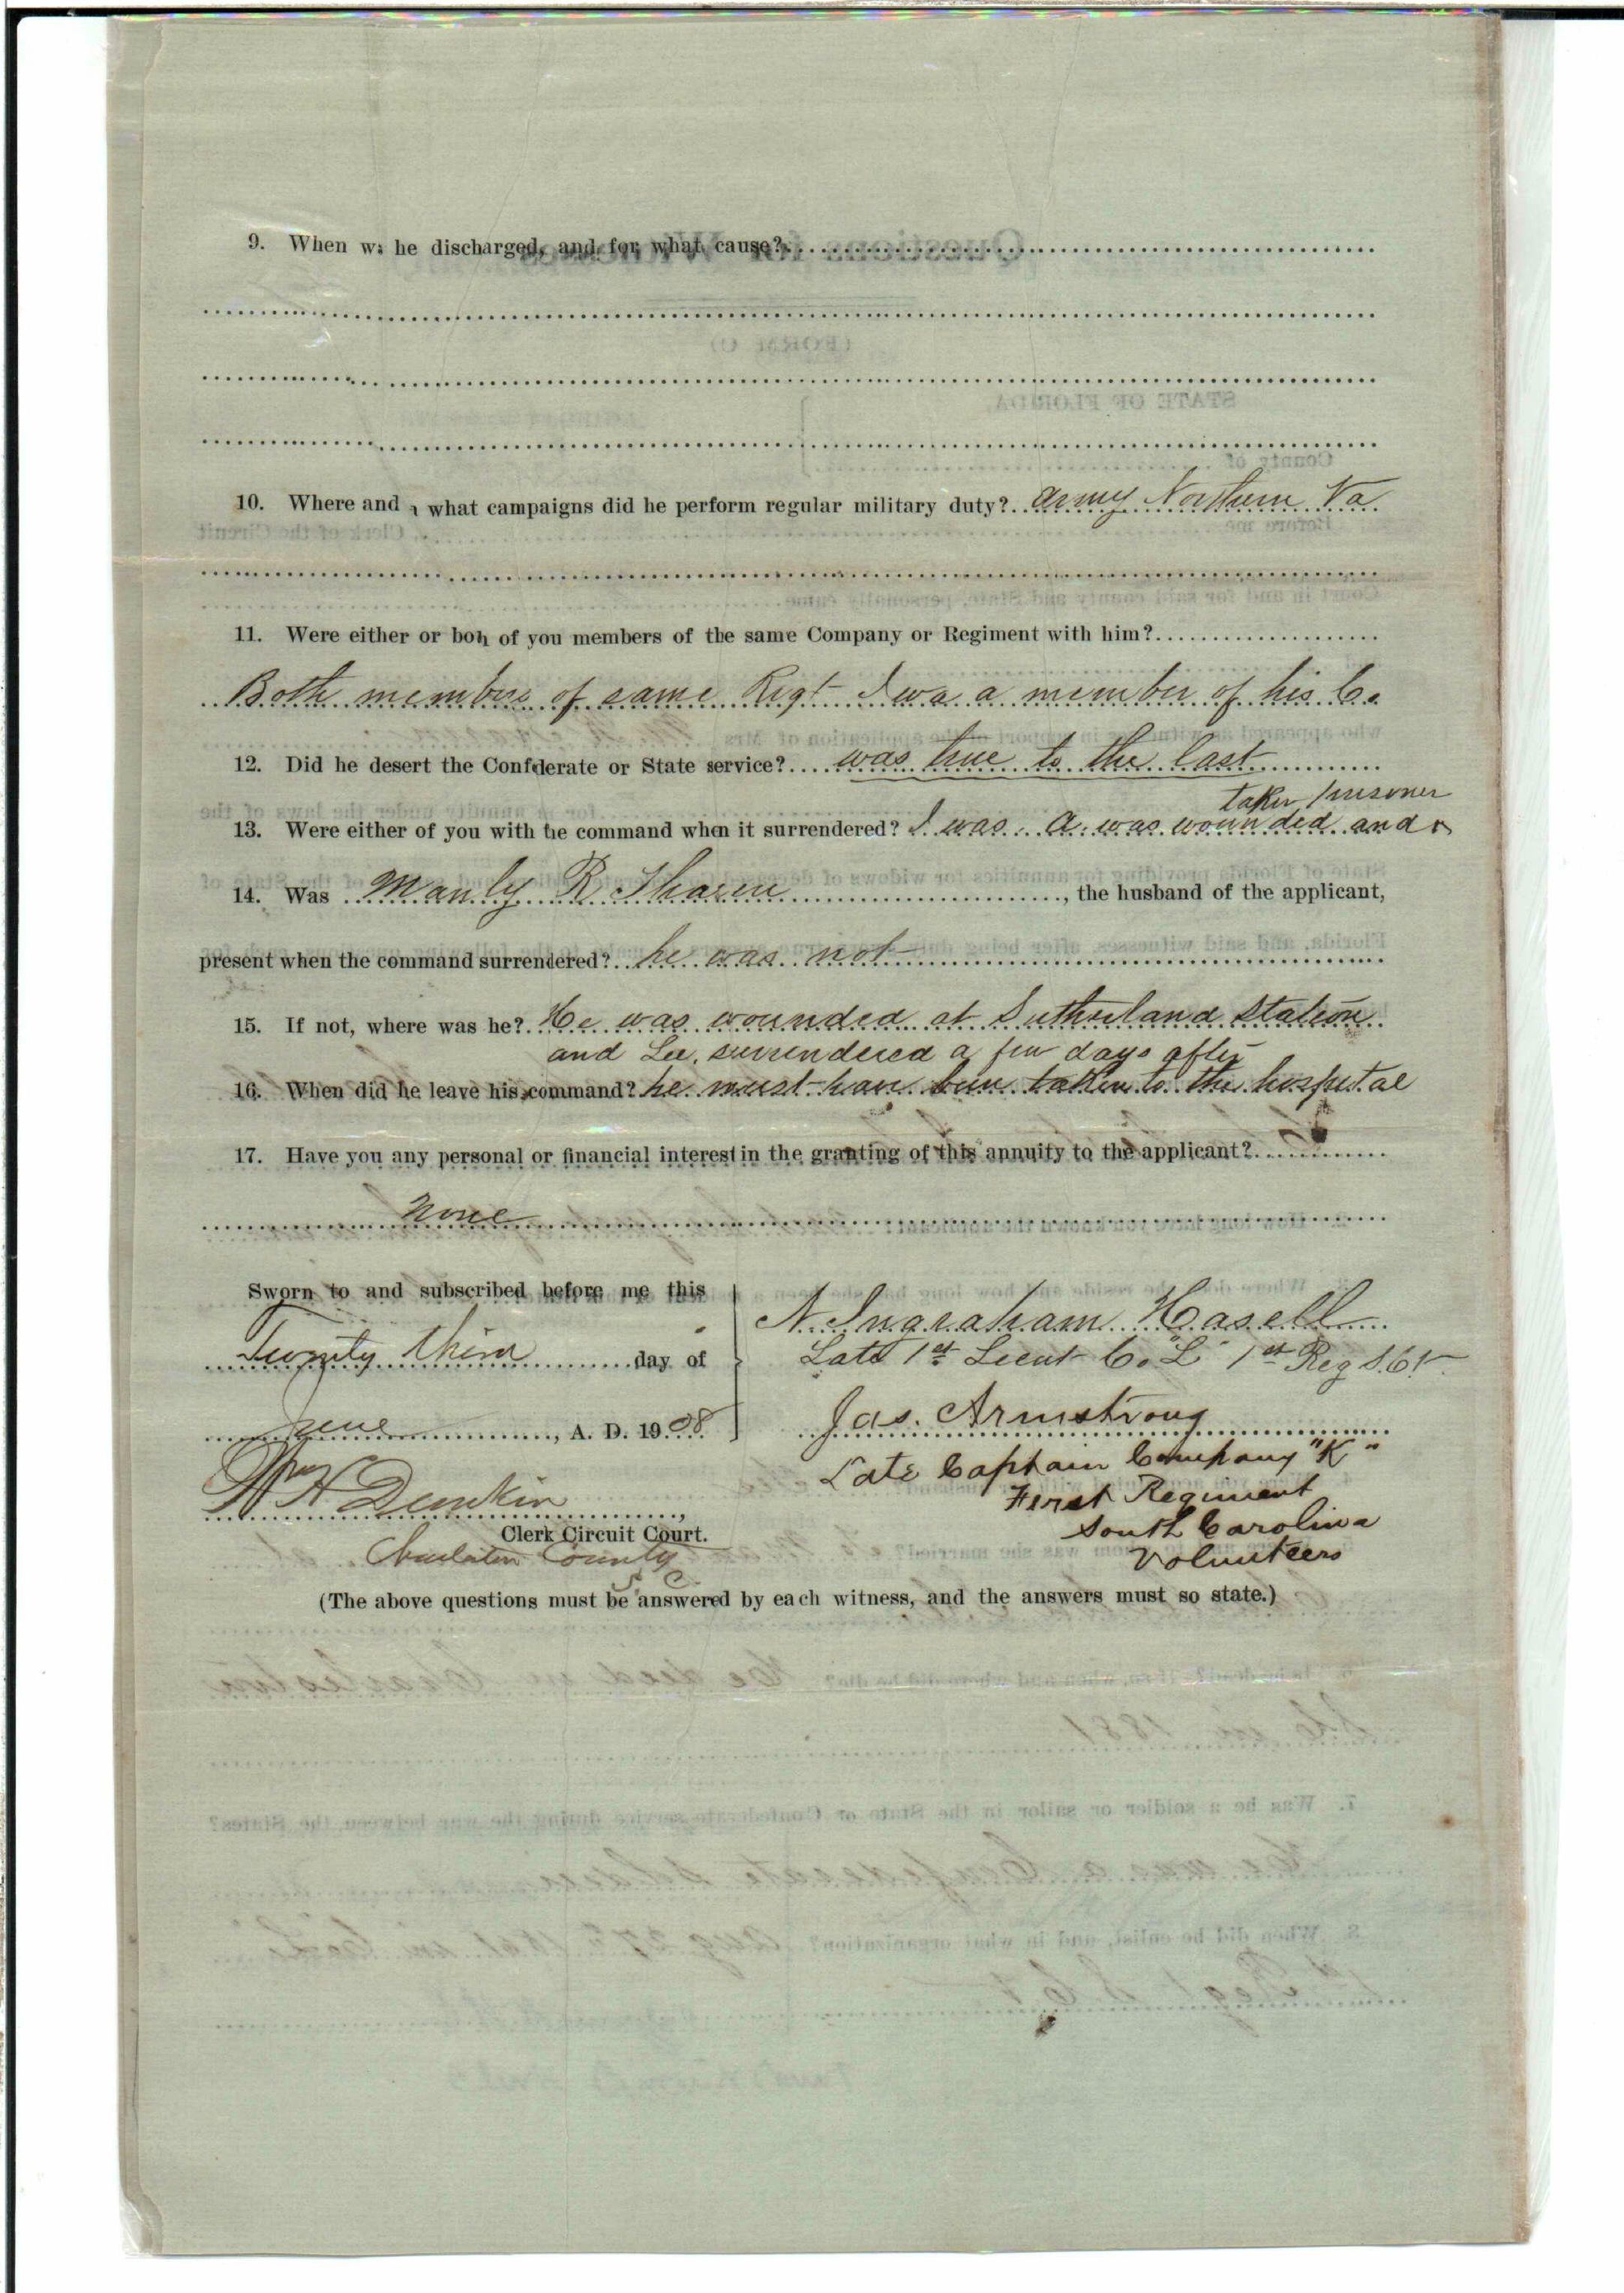 9. When wa he discharged, and for what cause?
10. Where and what campaigns did he perform regular military duty? Army Northern Va
11. Were either or both of you members of the same Company or Regiment with him?
Both members of same Regt I was a member of his Co
12. Did he desert the Confederate or State service? was true to the last
taken prisoner
13. Were either of you with the command when it surrendered? I was. A. was wounded and
14. Was Manly R. , the husband of the applicant,
present when the command surrendered? he was not
15. If not, where was he? He was wounded at Sutherland Station
and Lee surrendered a few days after
16. When did he leave his command? he must have been taken to the hospital
17. Have you any personal or financial interest in the granting of this annuity to the applicant?
None
Sworn to and subscribed before me this
Twenty third day of
June, A. D. 1908
N. Ingraham Hasell
Late 1st Lieut Co "L" 1st Reg S.C.V.
Jas. Armstrong
Late Captain Company "K"
First Regiment
South Carolina
Volunteers
Clerk Circuit Court.
Charleston County
S. C.
(The above questions must be answered by each witness, and the answers must so state.)